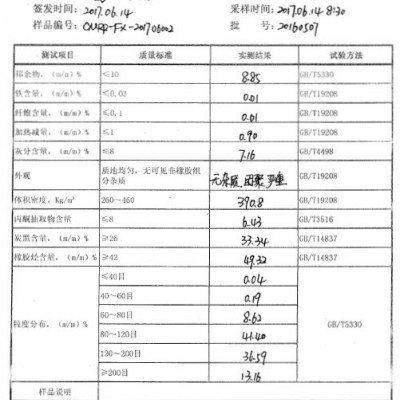 签发时间：2017.06.14 采样时间：2017.06.14 8:30
样品编号：QURP-FX-201706002 批 号：20160507
测试项目 质量标准 实测结果 试验方法
筛余物，（m/m）% ≤10 8.85 GB/T5330
铁含量，（m/m）% ≤0.03 0.01 GB/T19208
纤维含量，（m/m）% ≤0.1 0.01 GB/T19208
加热减量，（m/m）% ≤1 0.90 GB/T19208
灰分含量，（m/m）% ≤8 7.16 GB/T4498
外观 质地均匀，无可见非橡胶组分杂质 无杂质 GB/T19208
体积密度，Kg/m³ 260～460 390.8 GB/T19208
丙酮抽取物含量 ≤8 6.43 GB/T3516
炭黑含量，（m/m）% ≥26 33.34 GB/T14837
橡胶烃含量，（m/m）% ≥42 49.32 GB/T14837
粒度分布，（m/m）% GB/T5330
≤40目 0.04
40～60目 0.19
60～80目 8.62
80～120目 41.40
120～200目 36.59
≥200目 13.16
样品说明